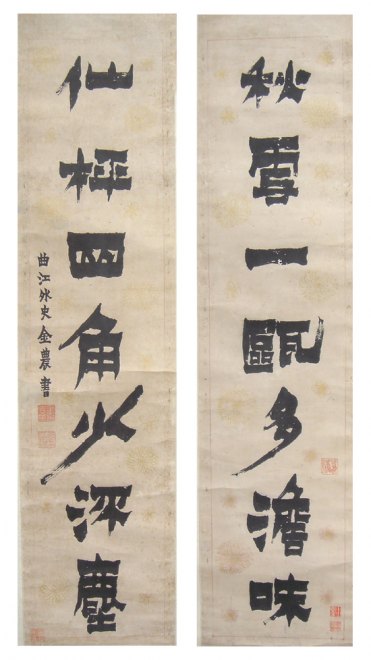 秋雪一甌多澹味
仙枰四角少浮塵
曲江外史金農書